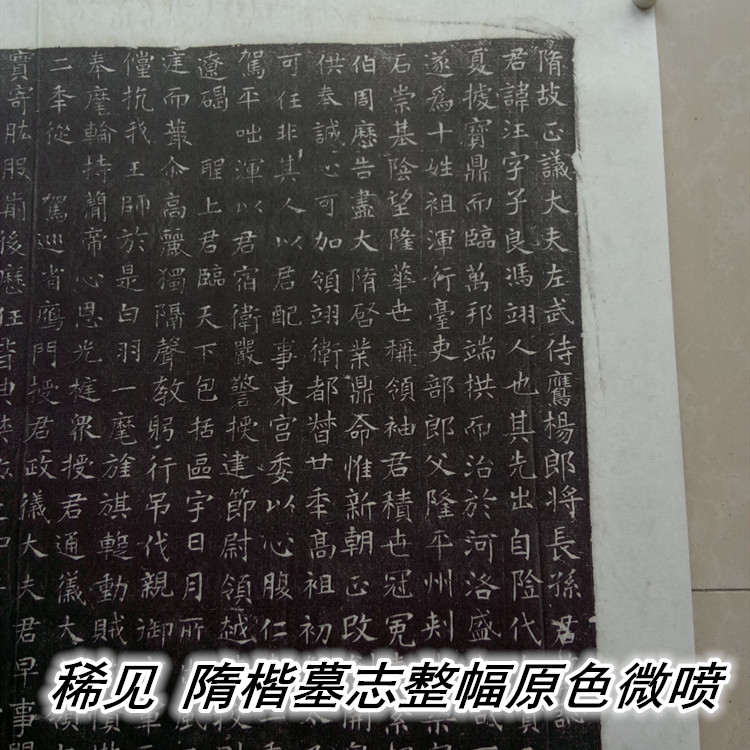 隋故正議大夫左武侍鷹楊郎將長孫君
君諱汪字子良馮翊人也其先出自陰代
夏據寶鼎而臨萬邦端拱而治於河洛盛
遂為十姓祖渾行臺吏部郎父隆平州刺
石崇基陰望隆華世稱領袖君積世冠冕
伯周曆告盡大隋啓業鼎命惟新朝正改
供奉誠心可加領翊衛都督廿年高祖初
可任非其人以君配事東宮委以心腹仁
駕平吐渾以君宿衛嚴警授建節尉領越
遼碣聖上君臨天下包括區宇日月所
庭而蕞尒高麗獨隔聲教躬行吊伐親御
僮抗我王師於是白羽一麾旌旗蹔動賊
奉麾輪持蕳帝心恩光樶眾授君通儀大
二年從駕巡省鴈門授君政儀大夫君早事
實寄肱股前後歷任皆
稀见 隋楷墓志整幅原色微喷